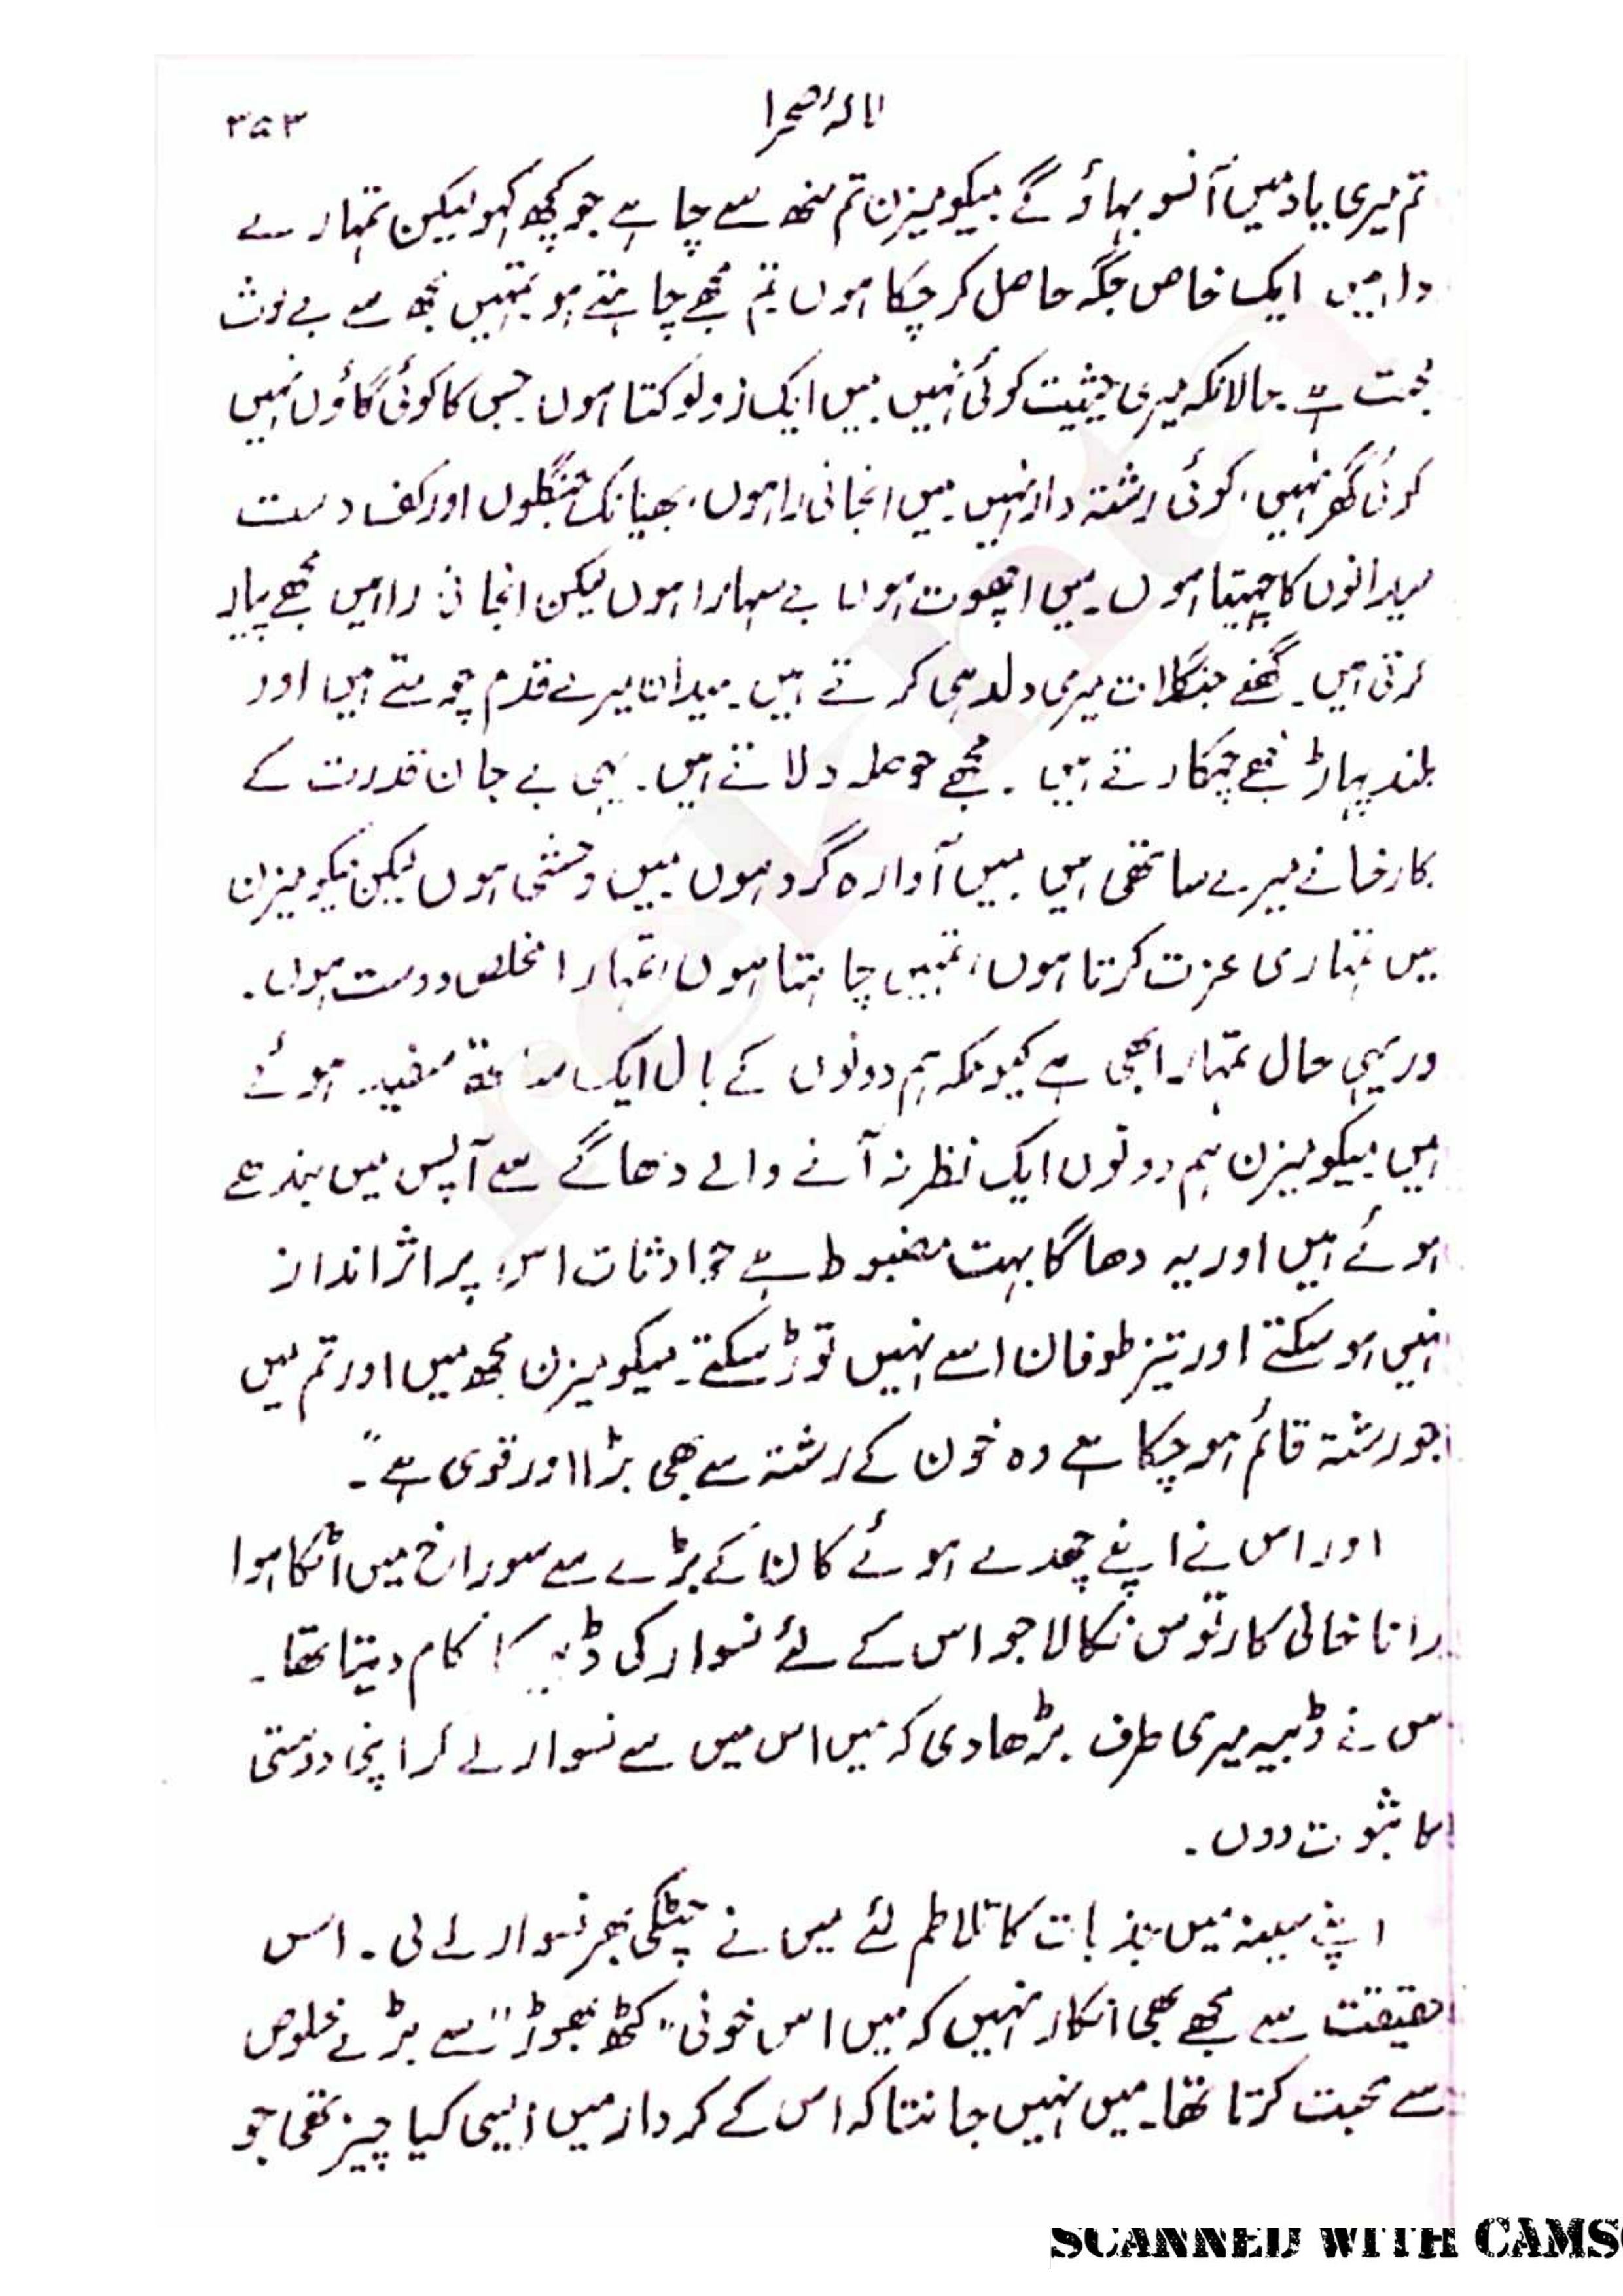 نالۂ صحرا
۳۵۳
تم میری یاد میں آنسو بہاؤ گے میکومیزن تم منھ سے چاہے جو کچھ کہو لیکن تمہارے
دل میں ایک خاص جگہ حاصل کر چکا ہوں تم مجھے چاہتے ہو تمہیں مجھ سے بے لوث
محبت ہے حالانکہ میری حیثیت کوئی نہیں میں ایک زولو کتا ہوں جس کا کوئی گاؤں نہیں
کوئی گھر نہیں، کوئی رشتہ دار نہیں میں انجانی راہوں، بھیانک جنگلوں اور کف دست
میدانوں کا چہیتا ہوں۔ میں اچھوت ہوں بے سہارا ہوں لیکن انجانی راہیں مجھے پیار
کرتی ہیں۔ گھنے جنگلات میری دلدہی کرتے ہیں۔ میدان میرے قدم چومتے ہیں اور
بلند پہاڑ مجھے چمکارتے ہیں۔ مجھے حوصلہ دلاتے ہیں۔ یہی بے جان قدرت کے
کارخانے میرے ساتھی ہیں میں آوارہ گرد ہوں میں وحشی ہوں لیکن میکومیزن
میں تمہاری عزت کرتا ہوں، تمہیں چاہتا ہوں، تمہارا مخلص دوست ہوں۔
ور یہی حال تمہارا بھی ہے کیونکہ ہم دونوں کے بال ایک ساتھ سفید ہوئے
ہیں میکومیزن ہم دونوں ایک نظر نہ آنے والے دھاگے سے آپس میں بندھے
ہوئے ہیں اور یہ دھاگا بہت مضبوط ہے حوادثات اس پر اثر انداز
نہیں ہو سکتے اور تیز طوفان اسے نہیں توڑ سکتے۔ میکومیزن مجھ میں اور تم میں
جو رشتہ قائم ہو چکا ہے وہ خون کے رشتہ سے بھی بڑا اور قوی ہے"۔
اور اس نے اپنے چھدے ہوئے کان کے بڑے سے سوراخ میں اٹکا ہوا
رانا خالی کارتوس نکالا جو اس کے لئے نسوار کی ڈبیہ کا کام دیتا تھا۔
س نے ڈبیہ میری طرف بڑھا دی کہ میں اس میں سے نسوار لے کر اپنی دوستی
کا ثبوت دوں۔
اپنے سینہ میں جذبات کا تلاطم لئے میں نے چٹکی بھر نسوار لے لی۔ اس
حقیقت سے مجھے بھی انکار نہیں کہ میں اس خونی "کٹھ پھوڑ" سے بڑے خلوص
سے محبت کرتا تھا۔ میں نہیں جانتا کہ اس کے کردار میں ایسی کیا چیز تھی جو
SCANNED WITH CAMS